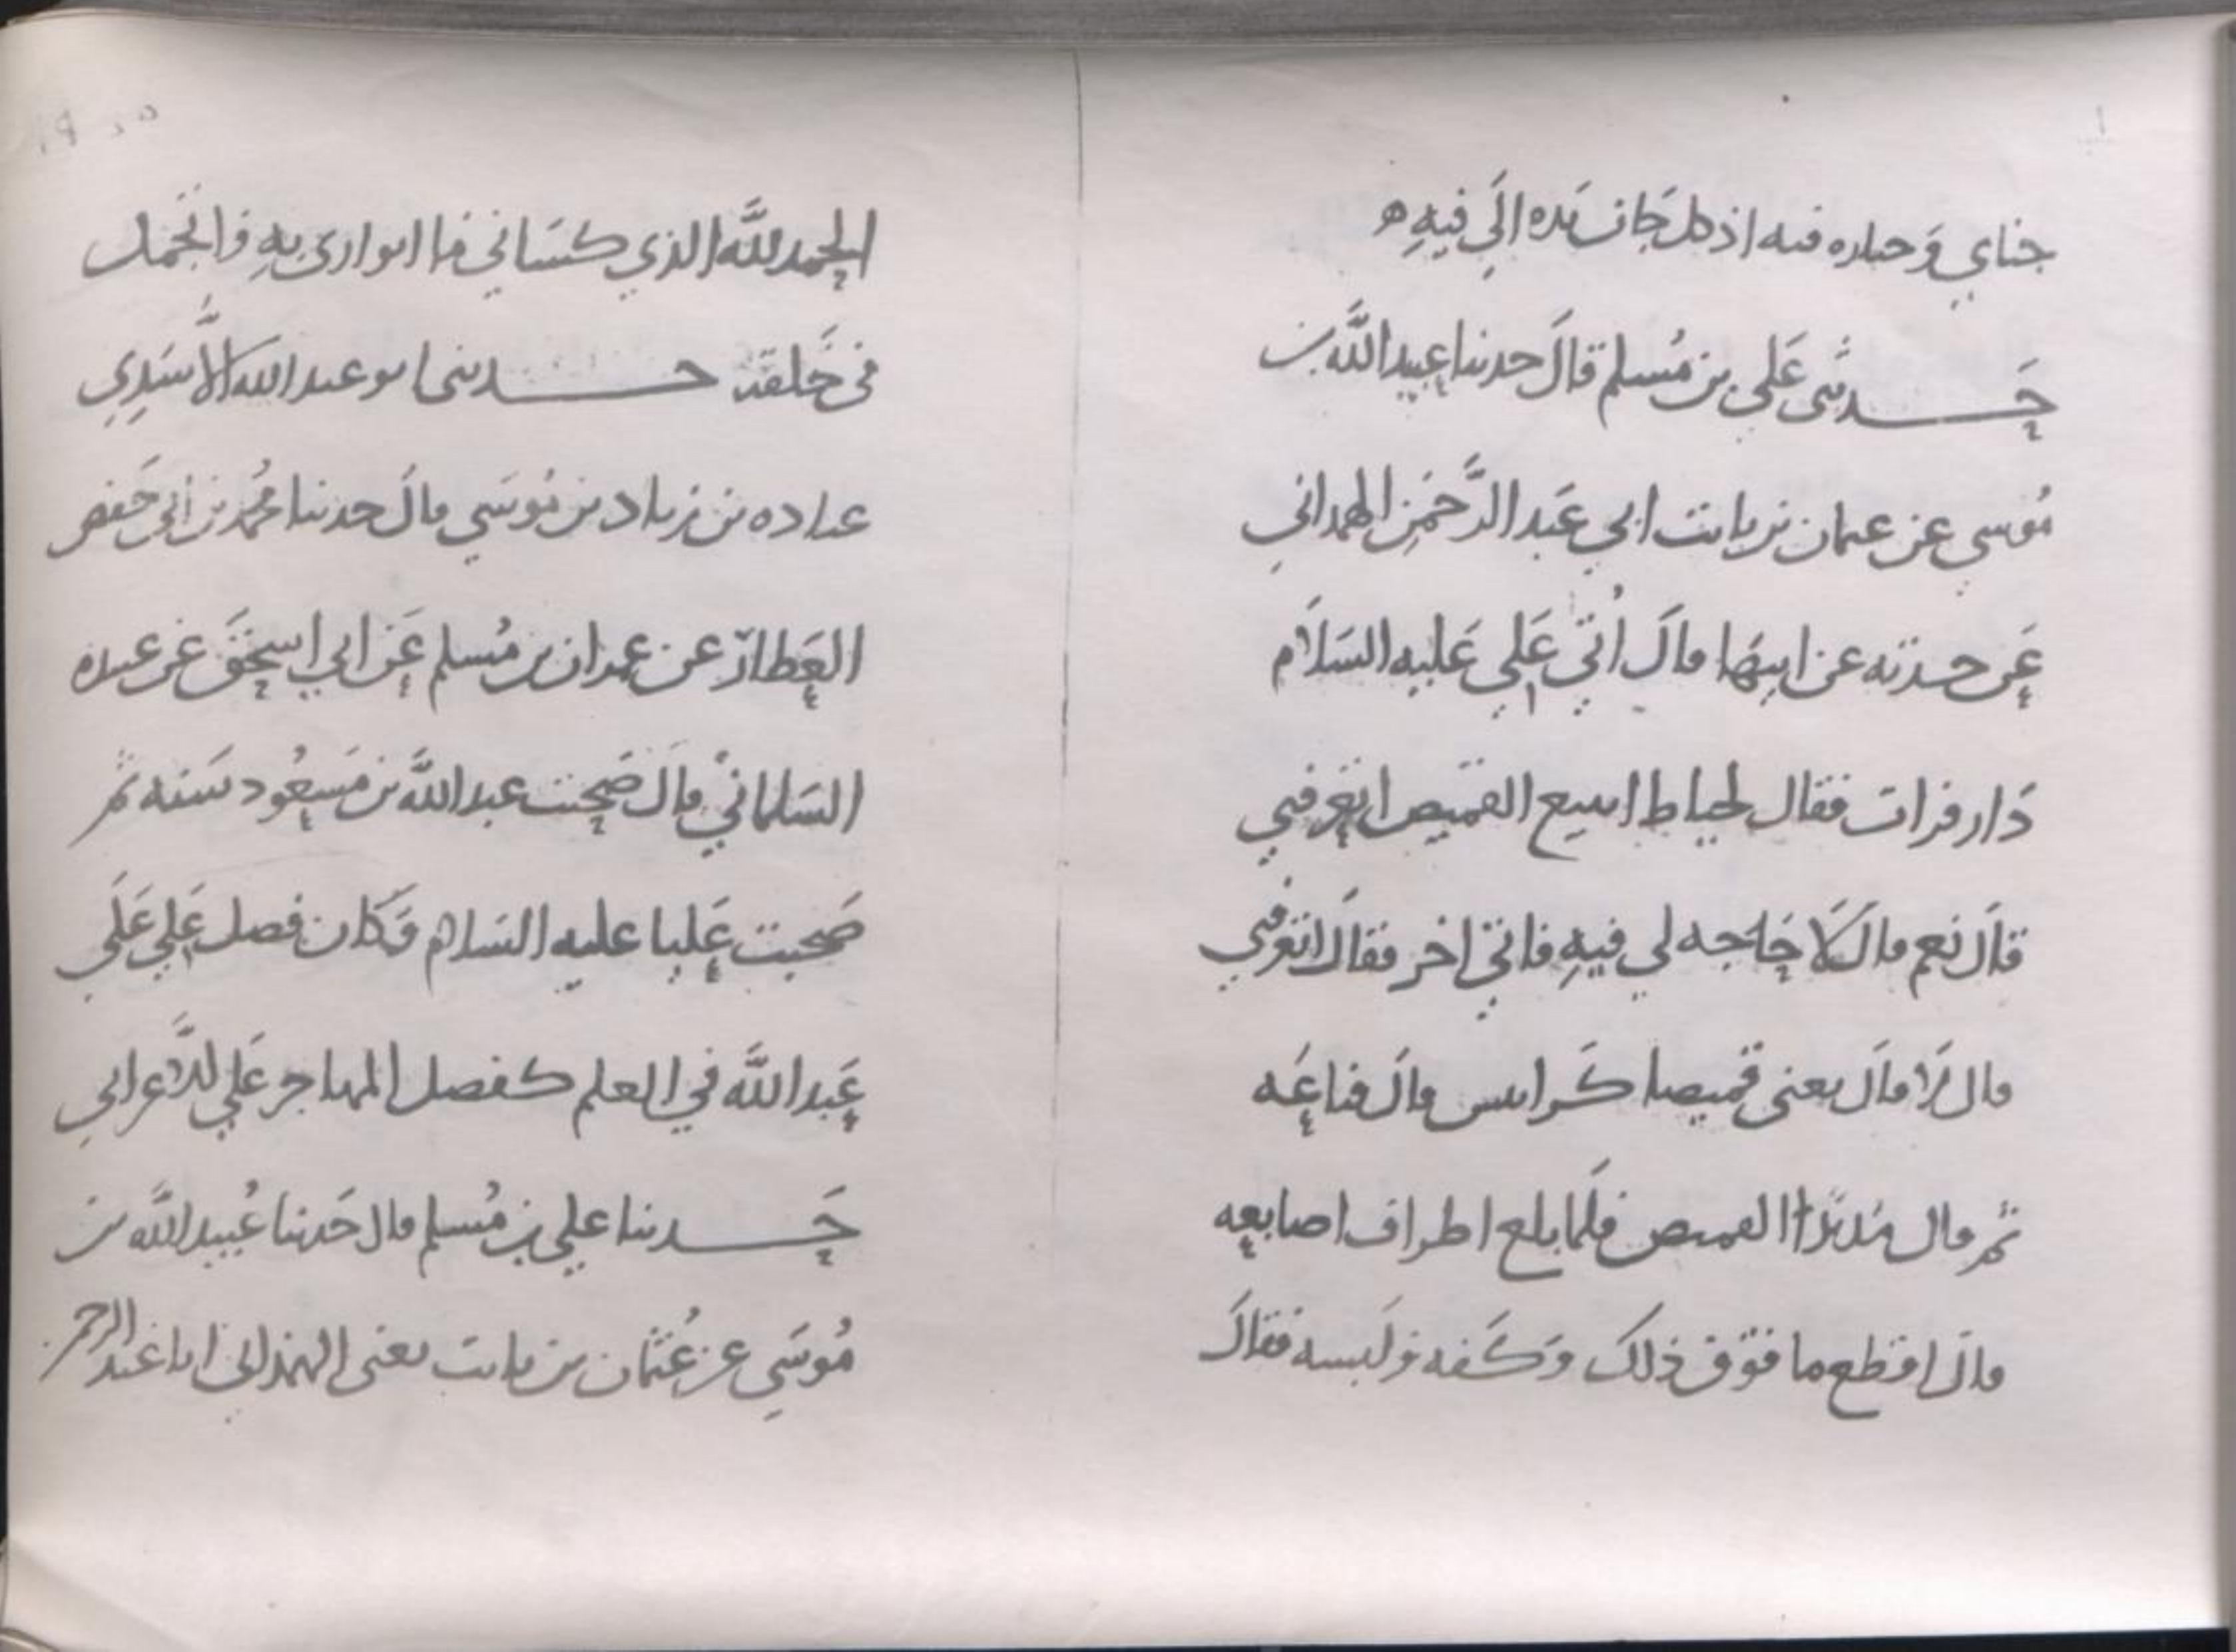 جناي وَخياره فيه اذ كل جَانٍ يَده اِلَي فيهِ ه
حَـدثني عَلي بن مُسلم قالَ حدثنا عبيد اللَّه بن
مُوسي عن عثمان بن ثابت ابي عَبد الرَّحمَن الهمداني
عَمن حدثته عن ابيهَا قالَ اُتي عَلِي عَليه السَلَام
دَار فرات فقال لخياط اتبيع القميص اتعرفني
قالَ نعم قالَ لَا حَاجه لي فيهِ فاتي اخر فقالَ اتعرفني
قال لَا قالَ بعني قميصا كَرابيس قالَ فباعَه
ثم قال مُد يَد القميص فلَما بلغ اطراف اصابعه
قالَ اقطع ما فوق ذلك وَكَفه وَلَبسه فقالَ
الحمد للَّه الذي كسَاني ما اتوارى بهِ وَاتجَمل
في خَلقه حـدثني ابو عبد الله الاسَدِي
عباده بن زياد بن مُوسَي قالَ حدثنا محُمد بن اَبي حَفص
العَطار عن عمران بن مُسلم عَن ابي اسحٰقَ عَن عبيده
السَلماني قالَ صَحِبت عبد اللَّه بن مَسعُود سَنه ثم
صَحبت عَليا عليه السَلام فَكان فضل عَلي عَلَي
عَبد اللَّه في العلم كفضل المهاجر عَلي الاَعرابي
حَـدثنا علي بن مُسلم قال حَدثنا عُبيد اللَّه بن
مُوسَي عن عُثمان بن ثابت يعني الهمداني ابا عَبد الرحمن